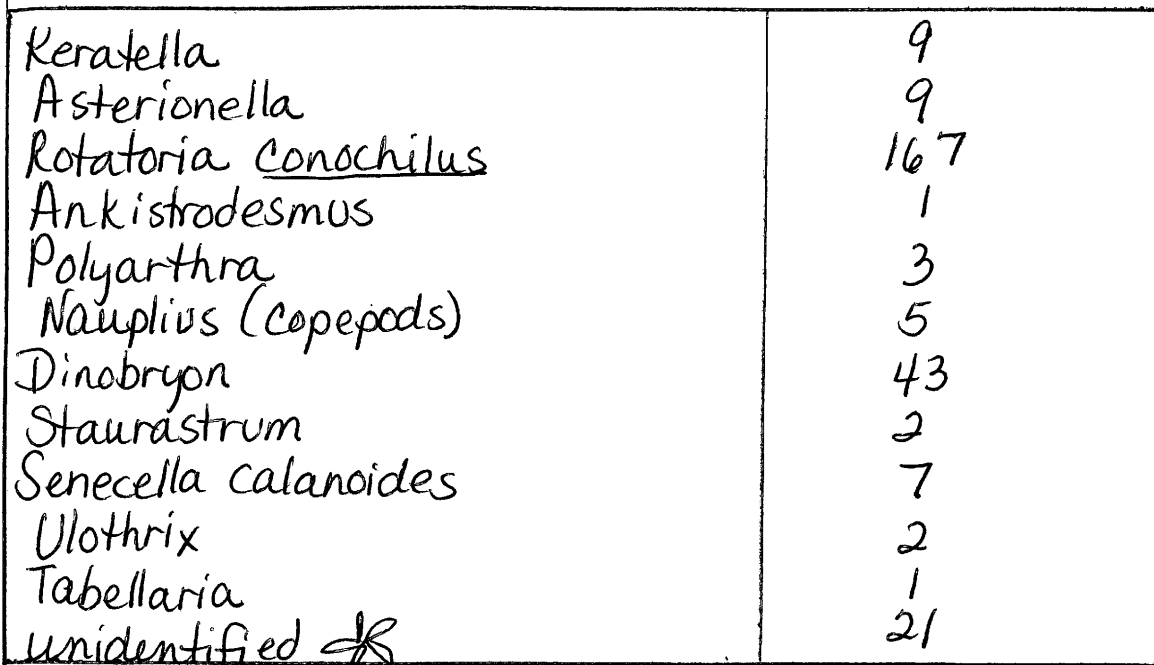 Keratella 9
Asterionella 9
Rotatoria conochilus 167
Ankistrodesmus 1
Polyarthra 3
Nauplius (copepods) 5
Dinobryon 43
Staurastrum 2
Senecella calanoides 7
Ulothrix 2
Tabellaria 1
unidentified 21